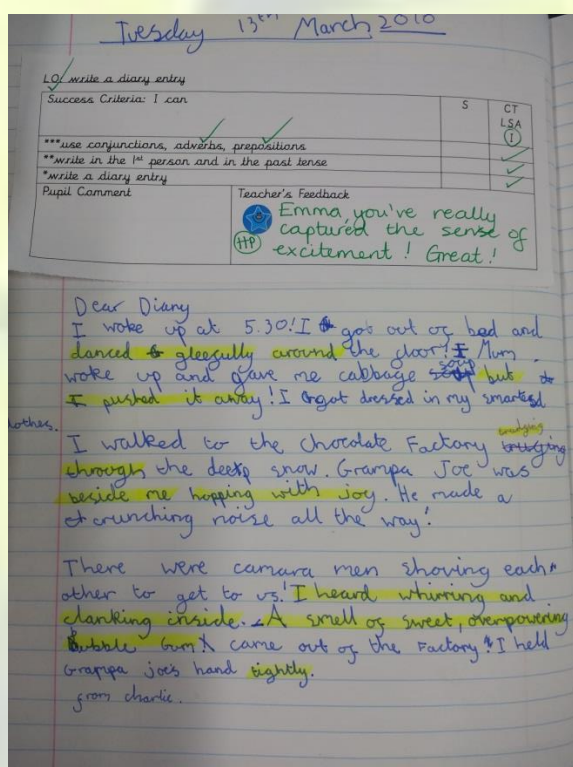 Tuesday 13th March 2010
LO: write a diary entry
Success Criteria: I can
S
CT
LSA
I
***use conjunctions, adverbs, prepositions
**write in the 1st person and in the past tense
*write a diary entry
Pupil Comment
Teacher's Feedback
Emma, you've really
captured the sense of
HP
excitement! Great!
Dear Diary
I woke up at 5.30! I got out of bed and
danced gleefully around the floor! Mum
woke up and gave me cabbage soup but
I pushed it away! I got dressed in my smartest
clothes.
I walked to the chocolate Factory trudging
through the deep snow. Grampa Joe was
beside me hopping with joy. He made a
crunching noise all the way!
There were camara men shoving each
other to get to us! I heard whirring and
clanking inside. A smell of sweet, overpowering
bubble Gum came out of the Factory! I held
Grampa joe's hand tightly.
from charlie.